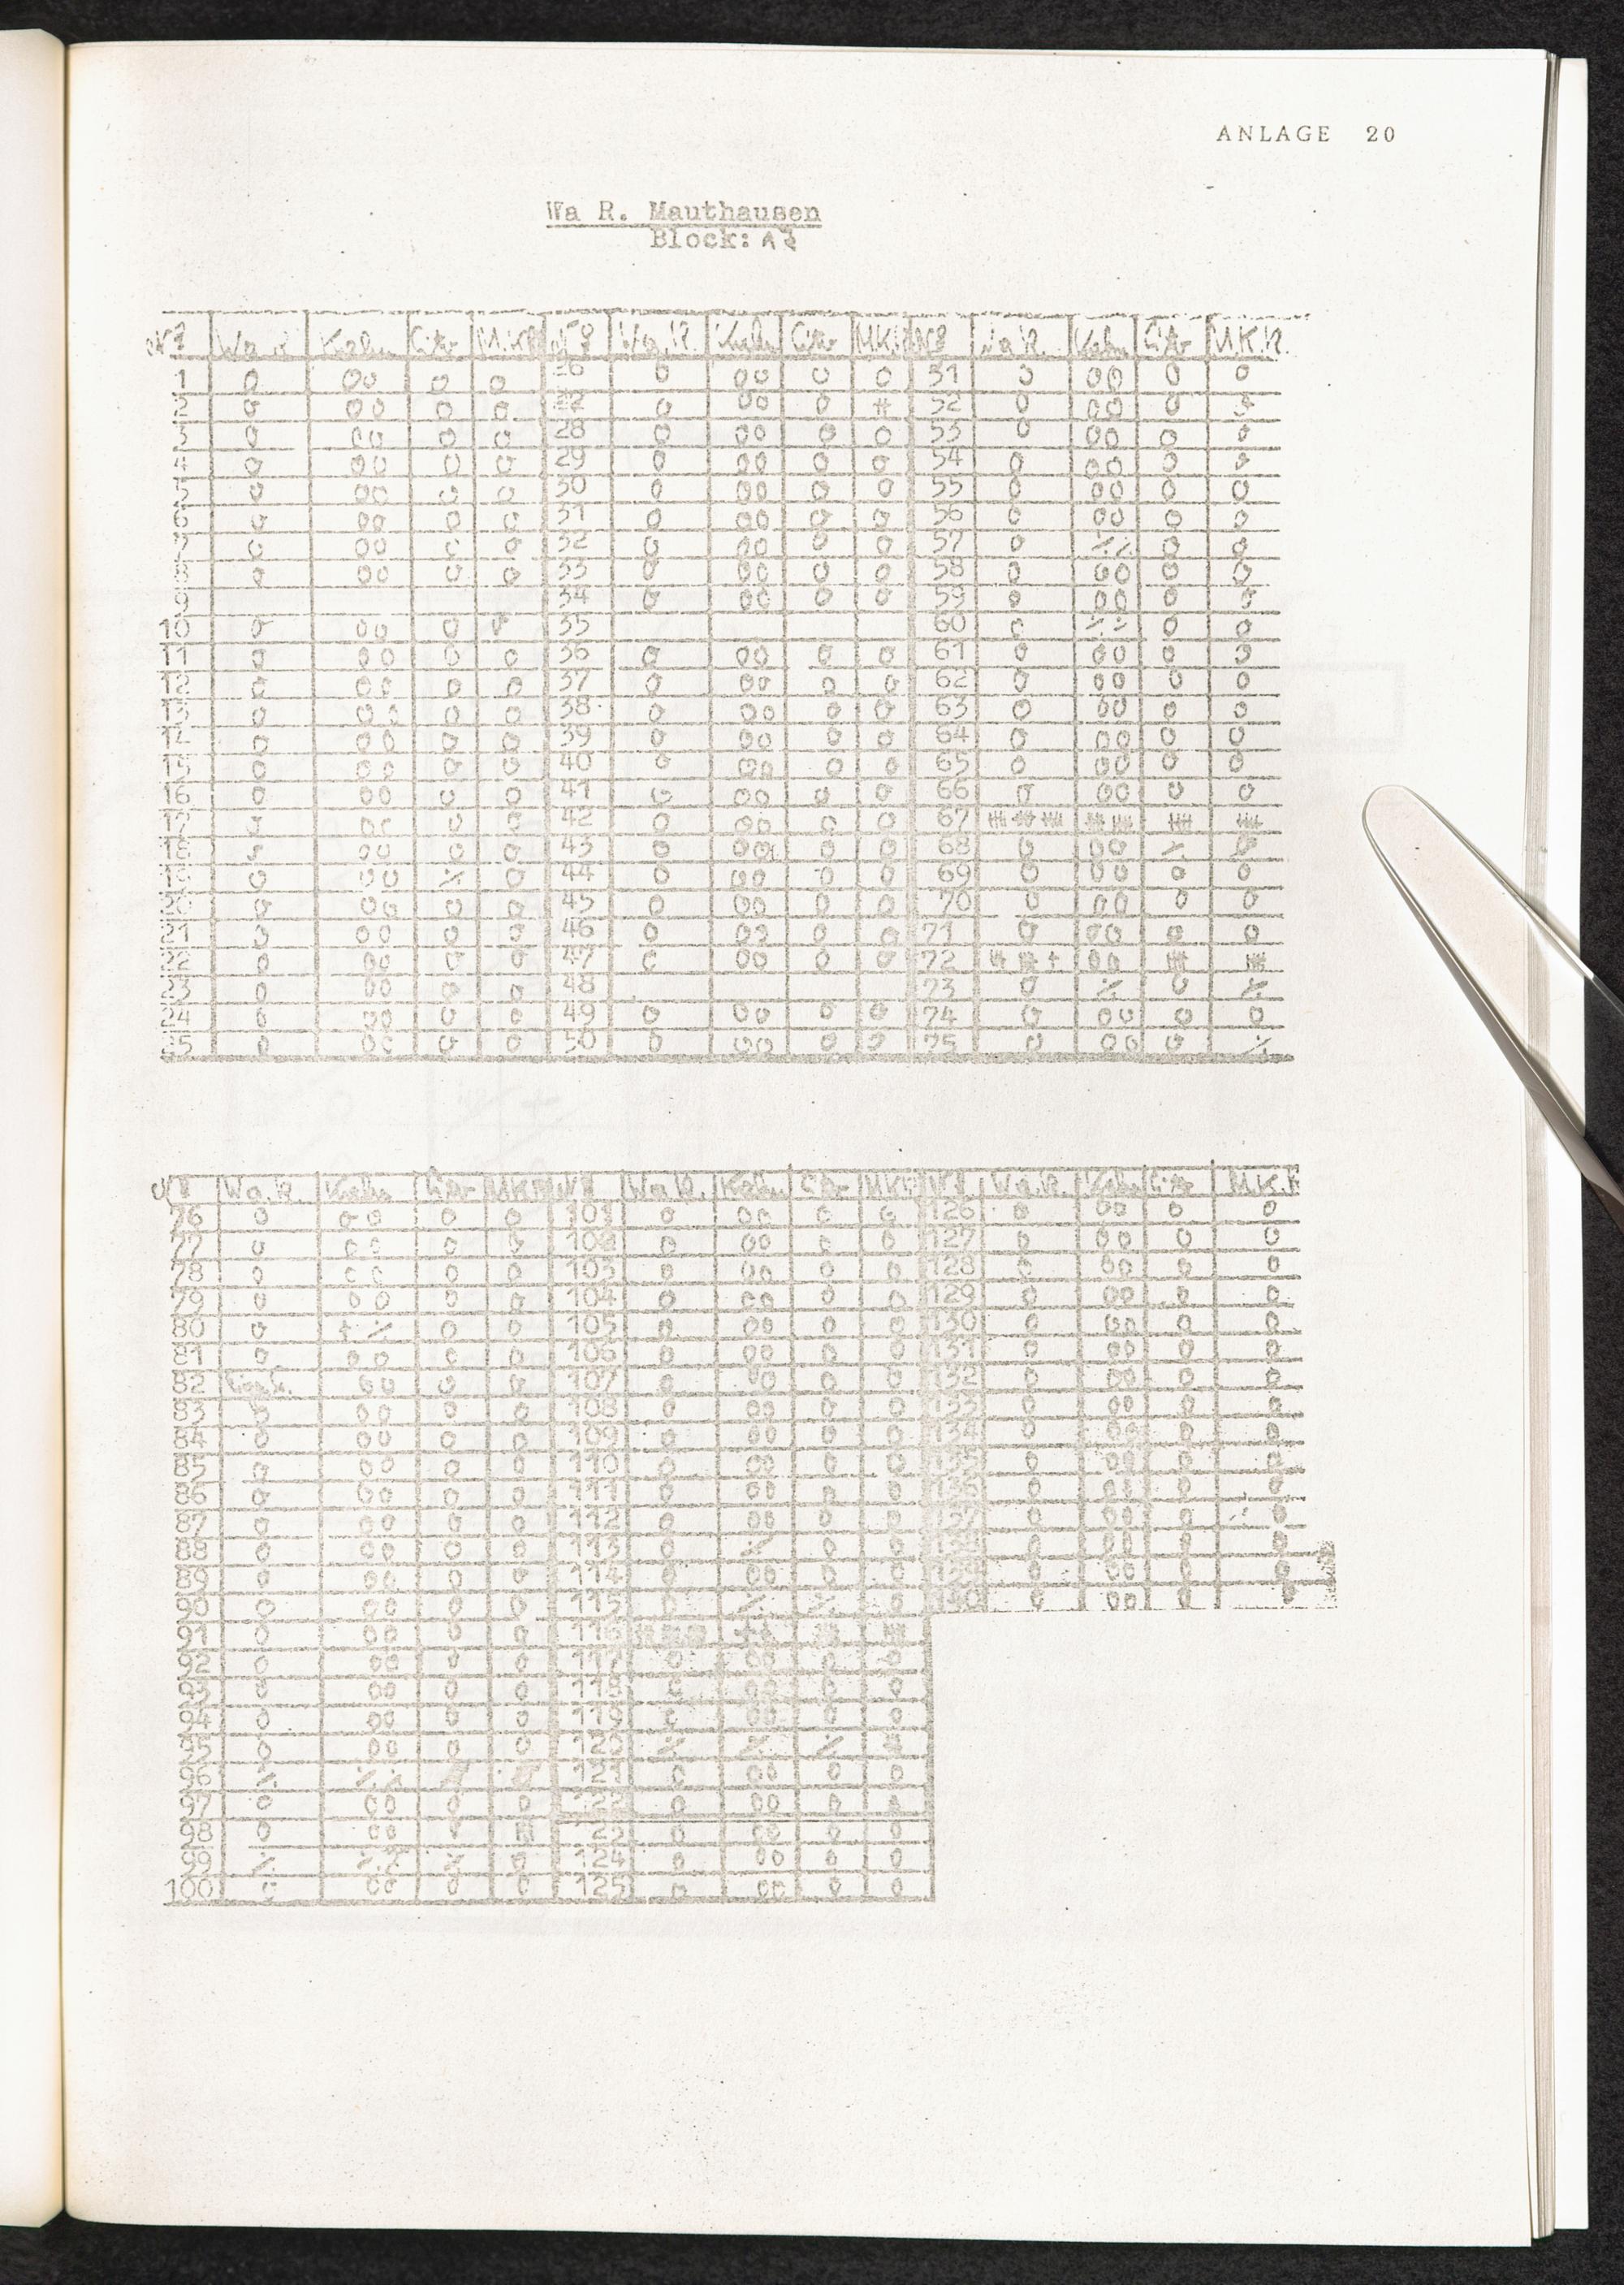 ANLAGE 20
Wa R. Mauthausen
Block:
Wa R. Kahn Cito M.K.R. Wa.R. Kahn Cito M.K.R. Wa R. Kahn Cito M.K.R.
1 0 00 0 0 26 0 00 0 0 51 0 00 0 0
2 0 00 0 0 27 0 00 0 # 52 0 00 0
3 0 00 0 0 28 0 00 0 0 53 0 00 0 0
4 0 00 0 0 29 0 00 0 0 54 0 00 0 0
5 0 00 0 0 30 0 00 0 0 55 0 00 0 0
6 0 00 0 0 31 0 00 0 0 56 0 00 0 0
7 0 00 0 0 32 0 00 0 0 57 0 ⁒⁒ 0 0
8 0 00 0 0 33 0 00 0 0 58 0 00 0 0
9 34 0 00 0 0 59 0 00 0 0
10 0 00 0 0 35 60 0 ⁒⁒ 0 0
11 0 00 0 0 36 0 00 0 0 61 0 00 0 0
12 0 00 0 0 37 0 00 0 0 62 0 00 0 0
13 0 00 0 0 38 0 00 0 0 63 0 00 0 0
14 0 00 0 0 39 0 00 0 0 64 0 00 0 0
15 0 00 0 0 40 0 00 0 0 65 0 00 0 0
16 0 00 0 0 41 0 00 0 0 66 0 00 0 0
17 0 00 0 0 42 0 00 0 0 67
18 0 00 0 0 43 0 00 0 0 68 0 00 ⁒
19 0 00 ⁒ 0 44 0 00 0 0 69 0 00 0 0
20 0 00 0 0 45 0 00 0 0 70 0 00 0 0
21 0 00 0 0 46 0 00 0 0 71 0 00 0 0
22 0 00 0 0 47 0 00 0 0 72 00
23 0 00 0 0 48 73 0 ⁒ 0 ⁒
24 0 00 0 0 49 0 00 0 0 74 0 00 0 0
25 0 00 0 0 50 0 00 0 0 75 0 00 0 ⁒
Wa.R. Kahn Cito M.K.R. Wa.R. Kahn Cito M.K.R. Wa.R. Kahn Cito M.K.R.
76 0 00 0 0 101 0 00 0 0 126 0 00 0 0
77 0 00 0 0 102 0 00 0 0 127 0 00 0 0
78 0 00 0 0 103 0 00 0 0 128 0 00 0 0
79 0 00 0 0 104 0 00 0 0 129 0 00 0 0
80 0 + ⁒ 0 0 105 0 00 0 0 130 0 00 0 0
81 0 00 0 0 106 0 00 0 0 131 0 00 0 0
82 00 0 0 107 0 00 0 0 132 0 00 0 0
83 0 00 0 0 108 0 00 0 0 133 0 00 0 0
84 0 00 0 0 109 0 00 0 0 134 0 00 0 0
85 0 00 0 0 110 0 00 0 0 135 0 00 0 0
86 0 00 0 0 111 0 00 0 0 136 0 00 0 0
87 0 00 0 0 112 0 00 0 0 137 0 00 0 0
88 0 00 0 0 113 0 ⁒ 0 0 138 0 00 0 0
89 0 00 0 0 114 0 00 0 0 139 0 00 0 0
90 0 00 0 0 115 0 ⁒ ⁒ 0 140 0 00 0 0
91 0 00 0 0 116
92 0 00 0 0 117 0 00 0 0
93 0 00 0 0 118 0 00 0 0
94 0 00 0 0 119 0 00 0 0
95 0 00 0 0 120 ⁒ ⁒ ⁒
96 ⁒ ⁒⁒ 121 0 00 0 0
97 0 00 0 0 122 0 00 0 0
98 0 00 0 123 0 00 0 0
99 ⁒ ⁒ 0 124 0 00 0 0
100 0 00 0 0 125 0 00 0 0